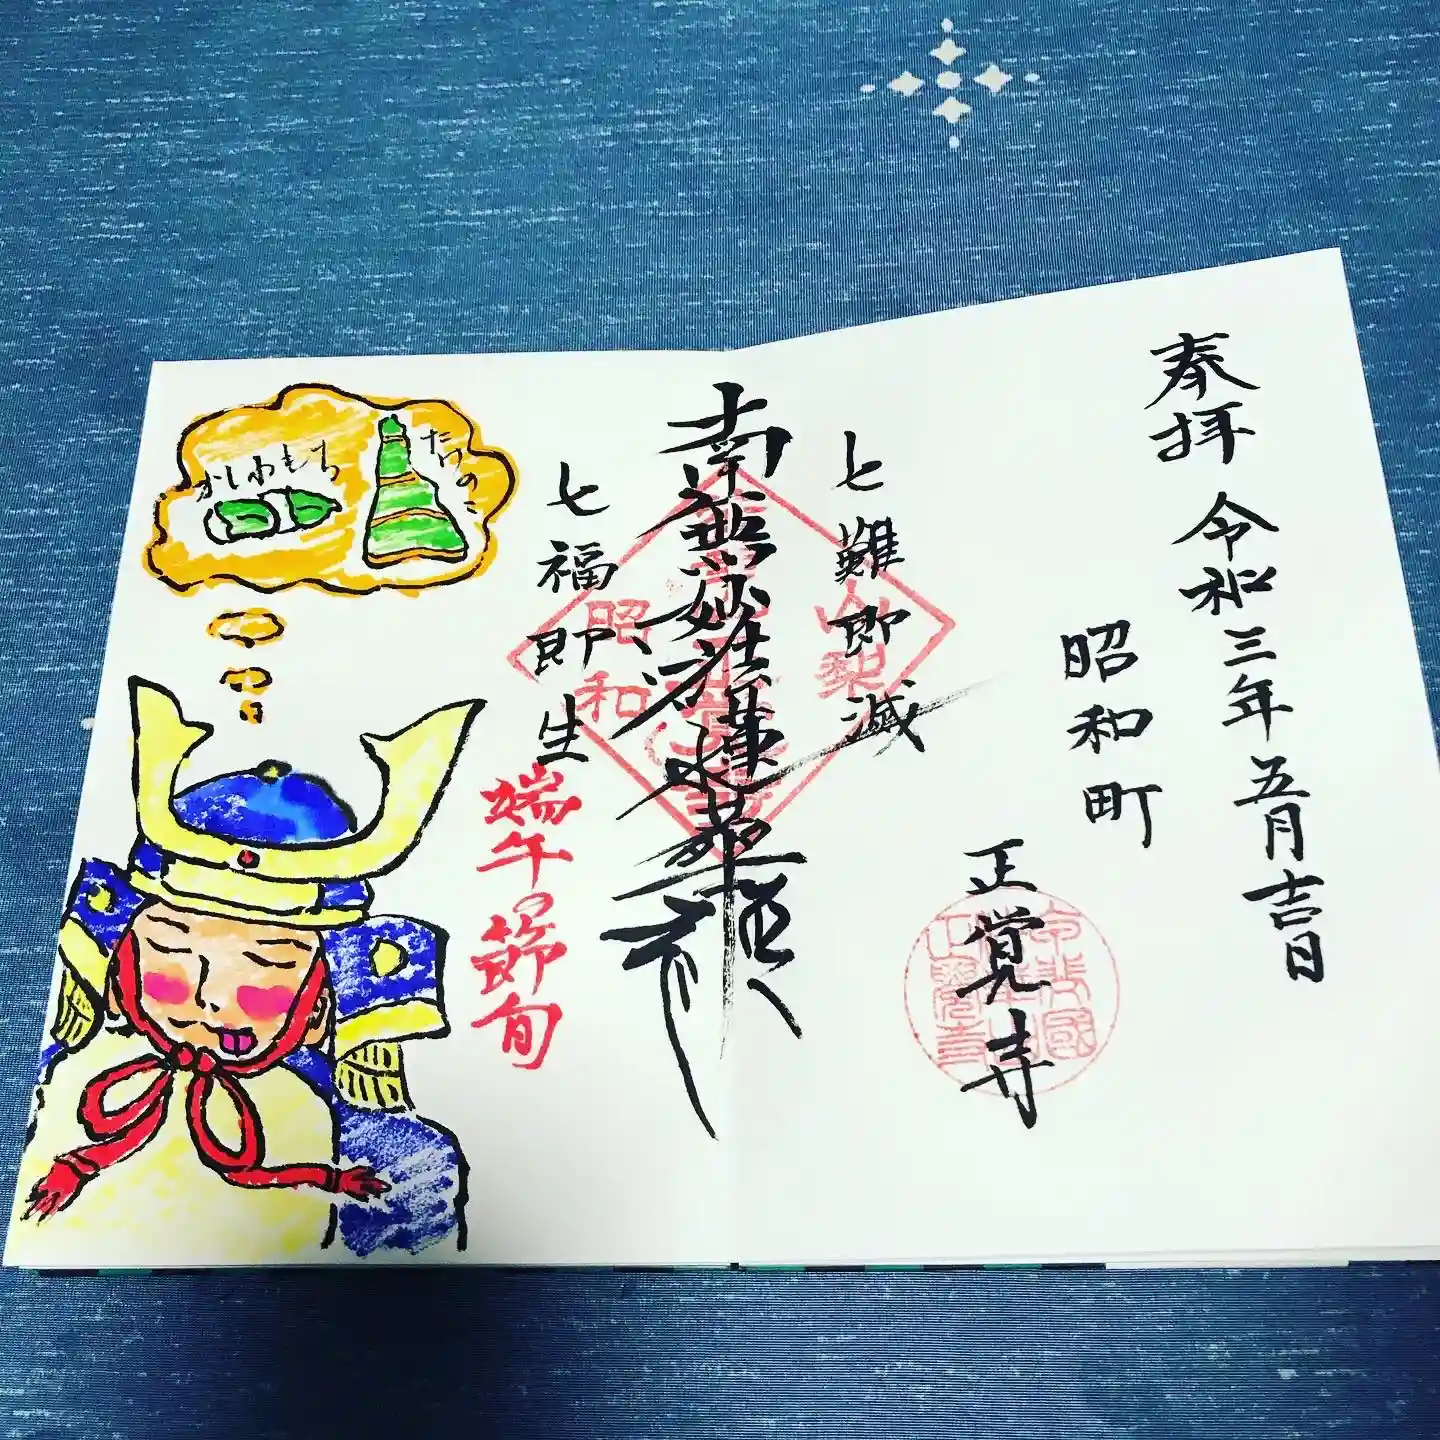 奉拝 令和三年五月吉日
昭和町
正覚寺
七難即滅
南無妙法蓮華経
七福即生
端午の節旬
山梨
昭和
正覚寺
たけのこ
かしわもち